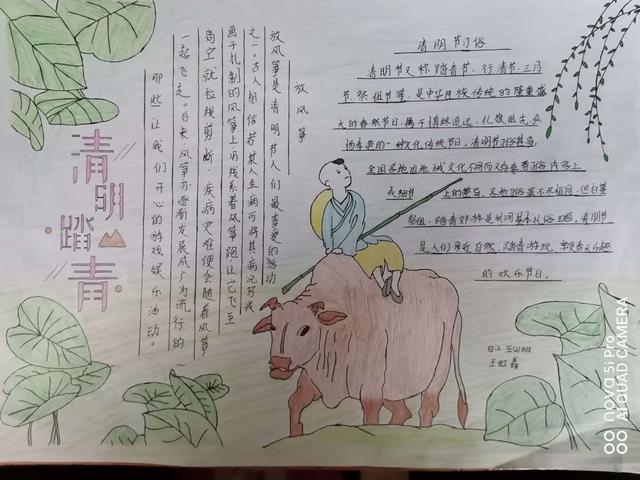 清明踏青
放风筝
放风筝是清明节人们最喜爱的活动
之一。古人相信若某人生病可将其病况写或
画于扎制的风筝上用线系着风筝跑让它飞至
高空就拉线剪断,疾病灾难便会随着风筝
一起飞走。后来,风筝亦逐渐发展成了为流行的
那些让我们开心的游戏娱乐活动。
清明节习俗
清明节又称踏青节、行清节、三月
节、祭祖节等,是中华民族传统的隆重盛
大的春祭节日,属于慎终追远、礼敬祖先、
的一种文化传统节日,清明节习俗甚多,
全国各地因地域文化不同而又存在着习俗内容上
或细节上的差异,各地习俗虽不尽相同,但扫墓
祭祖、踏青郊游是共同基本礼俗主题,清明节
是人们亲近自然、踏青游玩、享受春天乐趣
的欢乐节日。
五(2)班
王虹
nova 5i Pro
AI QUAD CAMERA